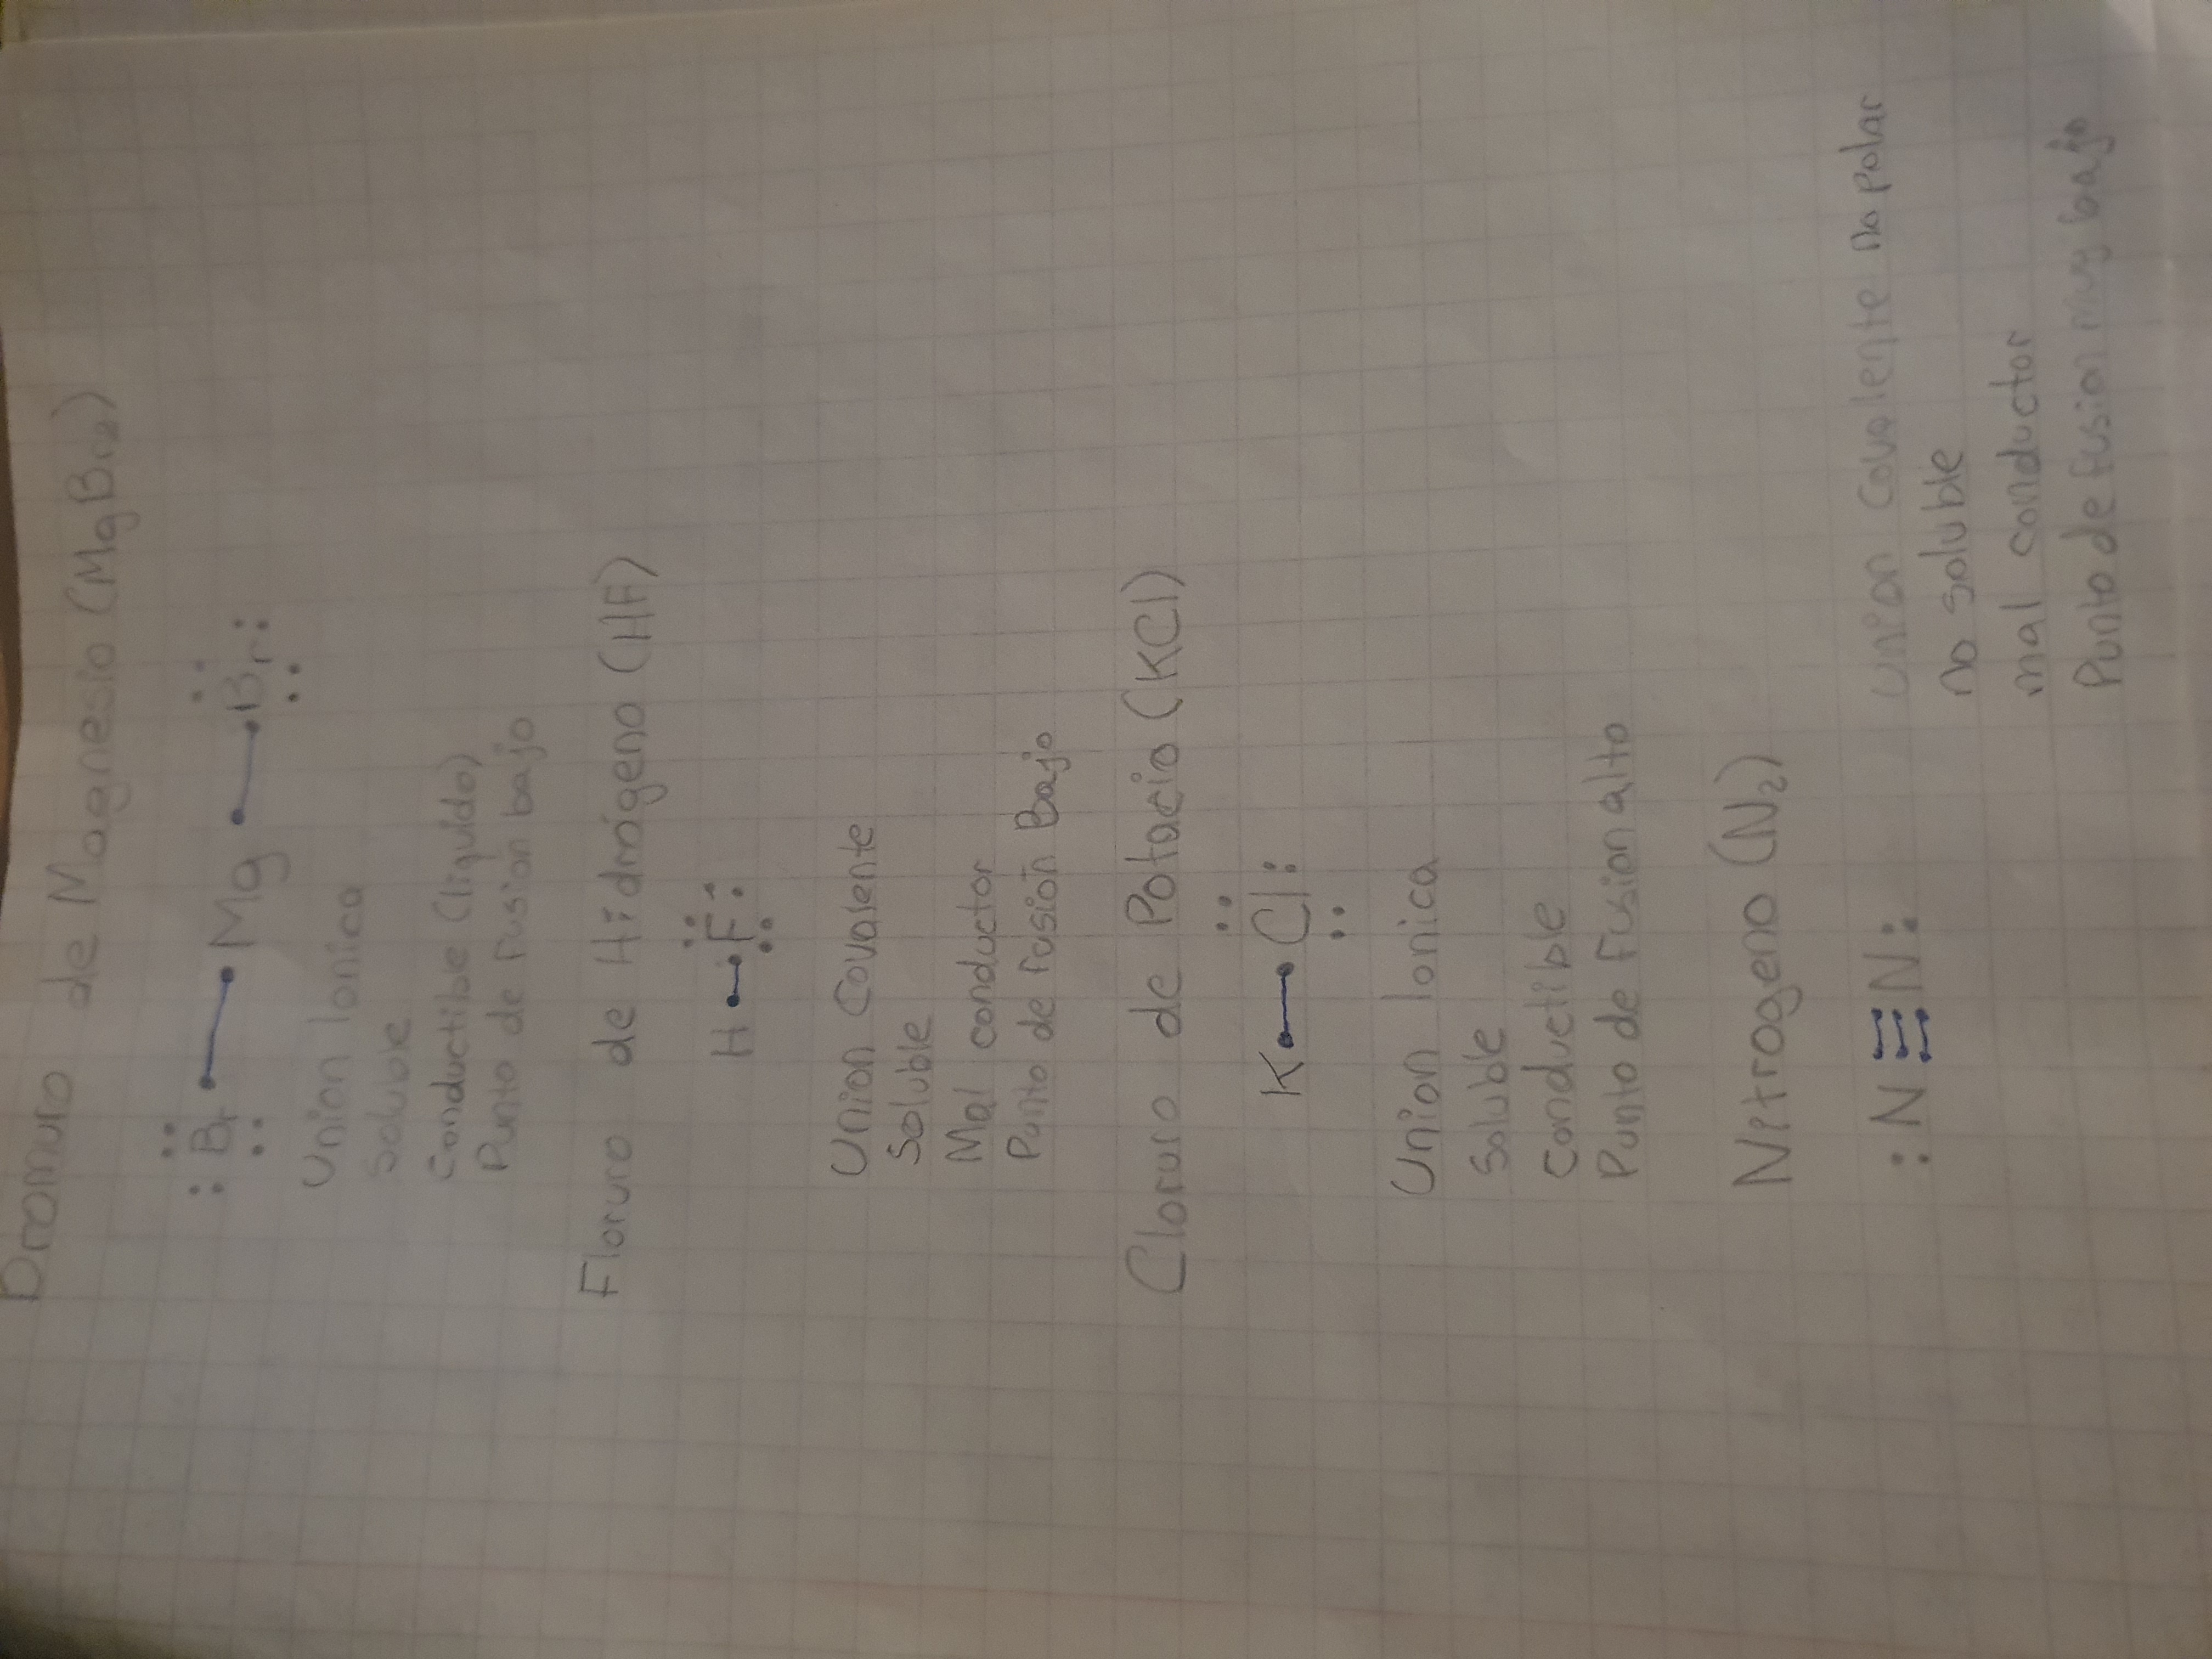 Bromuro de Magnesio (MgBr₂)
:Br — Mg — Br:
Union Ionica
Soluble
Conductible (liquido)
Punto de fusion bajo
Floruro de Hidrógeno (HF)
H — F:
Union Covalente
Soluble
Mal conductor
Punto de fusión Bajo
Cloruro de Potacio (KCl)
K — Cl:
Union Ionica
Soluble
Conductible
Punto de Fusion alto
Nitrogeno (N₂)
:N ≡ N:
Union Covalente no polar
no soluble
mal conductor
Punto de fusion muy bajo